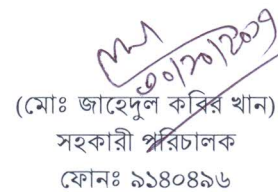 ৩০/১০/২০১৭
(মোঃ জাহেদুল কবির খান)
সহকারী পরিচালক
ফোনঃ ৯১৪০৪৯৬